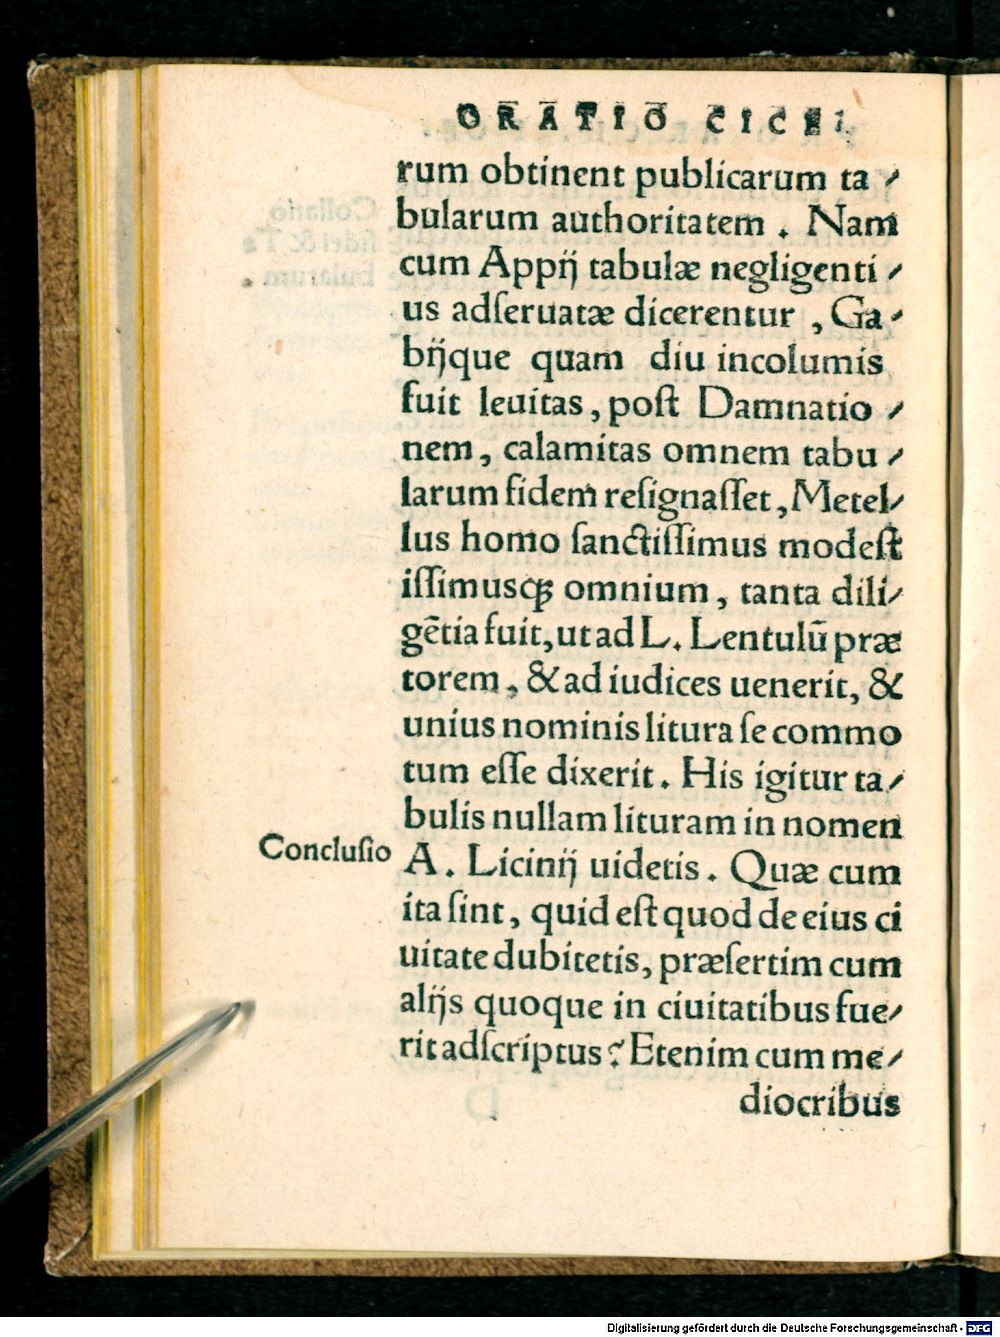 ORATIO CICEI.
rum obtinent publicarum ta-
bularum authoritatem. Nam
cum Appij tabulæ negligenti-
us adſeruatæ dicerentur, Ga-
bijque quam diu incolumis
fuit leuitas, poſt Damnatio-
nem, calamitas omnem tabu-
larum fidem reſignaſſet, Metel-
lus homo ſanctiſſimus modeſt
iſſimusqꝫ omnium, tanta dili-
gẽtia fuit, ut ad L. Lentulũ præ
torem, & ad iudices uenerit, &
unius nominis litura ſe commo
tum eſſe dixerit. His igitur ta-
bulis nullam lituram in nomen
Concluſio
A. Licinij uidetis. Quæ cum
ita ſint, quid eſt quod de eius ci
uitate dubitetis, præſertim cum
alijs quoque in ciuitatibus fue-
rit adſcriptus? Etenim cum me-
diocribus
Digitalisierung gefördert durch die Deutsche Forschungsgemeinschaft - DFG